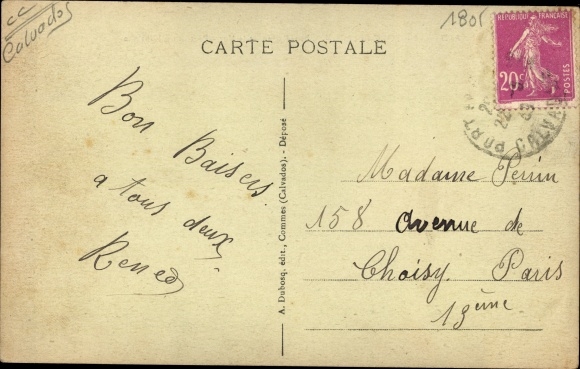 cc
Calvados
1805
REPUBLIQUE FRANÇAISE
20c
POSTES
CARTE POSTALE
PORT
CALVADOS
Bon Baisers
a tous deux
Renée
A. Dubosq, édit., Commes (Calvados). - Déposé
Madame Perin
158 Avenue de
Choisy. Paris
13ème